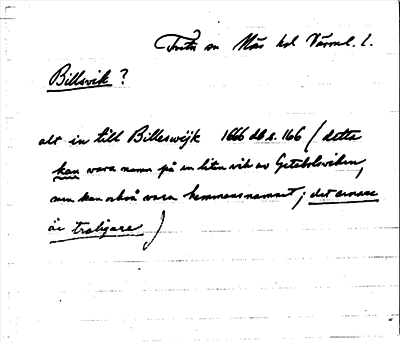 Näs hd Värml. l.
Billsvik ?
alt in till Billeswijk 1666 db s. 166 ( detta
kan vara namn på en liten vik av Getebolsviken,
men kan också vara hemmansnamnet ; det senare
är troligare )